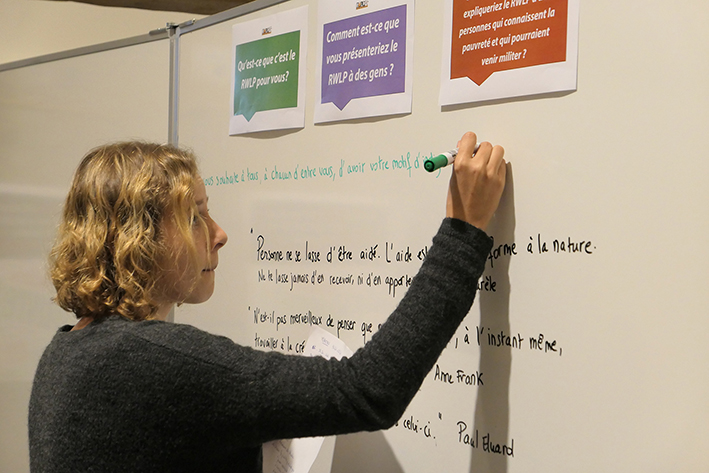 Qu'est-ce que c'est le
RWLP pour vous?
Comment est-ce que
vous présenteriez le
RWLP à des gens ?
expliqueriez le RWLP
personnes qui connaissent la
pauvreté et qui pourraient
venir militer ?
souhaite à tous, à chacun d'entre vous, d'avoir votre motif
"Personne ne se lasse d'être aidé. L'aide est forme à la nature.
Ne te lasse jamais d'en recevoir, ni d'en
"N'est-il pas merveilleux de penser que à l'instant même,
travailler à la
Anne Frank
celui-ci." Paul Eluard